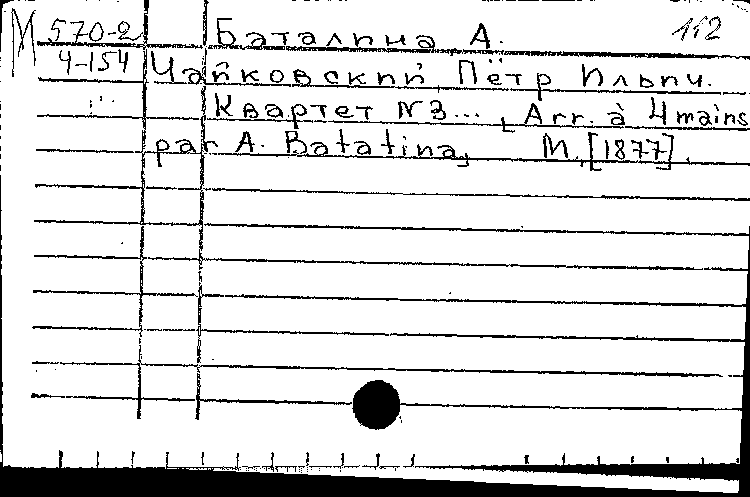 М 570-2 Баталина А. 112
4-154 Чайковский, Пётр Ильич.
Квартет №3..., Arr. à 4 mains
par A. Batatina, М., [1877].